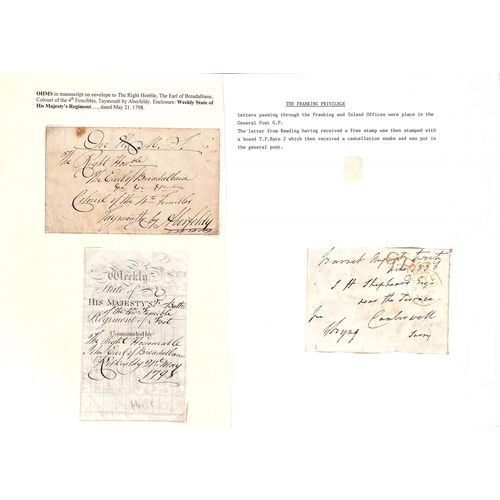 OHMS in manuscript on envelope to The Right Honble, The Earl of Breadalbane,
Colonel of the 4th Fencibles, Taymouth by Aberfeldy. Enclosure: Weekly State of
His Majesty's Regiment …, dated May 21, 1798.
On His M. S
The Right Honble
The Earl of Breadalbane
Colonel of the 4th Fencibles
Taymouth by Aberfeldy
Weekly
State of
HIS MAJESTY'S
of the Fencible
Regiment of Foot
Commanded by
The Right Honourable
John Earl of Breadalbane
Kirkcaldy 21st May
1798
THE FRANKING PRIVILEGE
Letters passing through the Franking and Inland Offices were place in the
General Post G.P.
The letter from Reading having received a free stamp was then stamped with
a boxed T.P.Rate 2 which then received a cancellation smake and was put in
the general post.
twenty
S H Shepheard Esq
near the Terrace
Camberwell
Surry